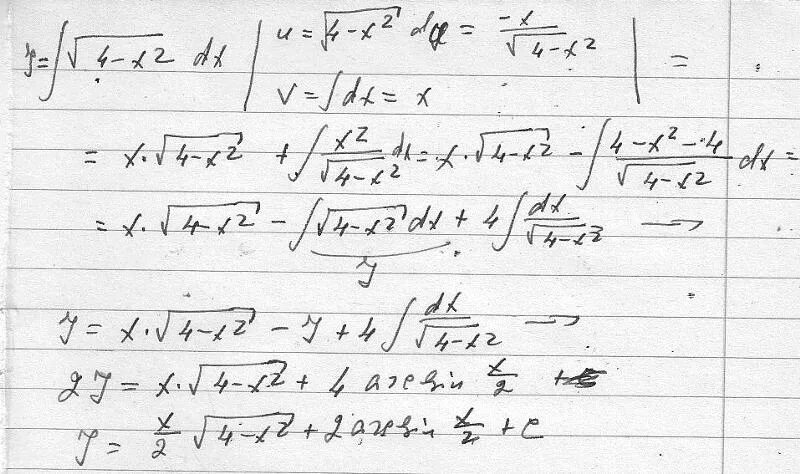 J = ∫ √(4-x²) dx | u = √(4-x²) du = -x/√(4-x²) | =
v = ∫dx = x
= x·√(4-x²) + ∫ x²/√(4-x²) dx = x·√(4-x²) - ∫ (4-x²-4)/√(4-x²) dx =
= x·√(4-x²) - ∫√(4-x²) dx + 4∫ dx/√(4-x²) →
J
J = x·√(4-x²) - J + 4∫ dx/√(4-x²) →
2J = x·√(4-x²) + 4 arcsin x/2
J = x/2 √(4-x²) + 2 arcsin x/2 + c